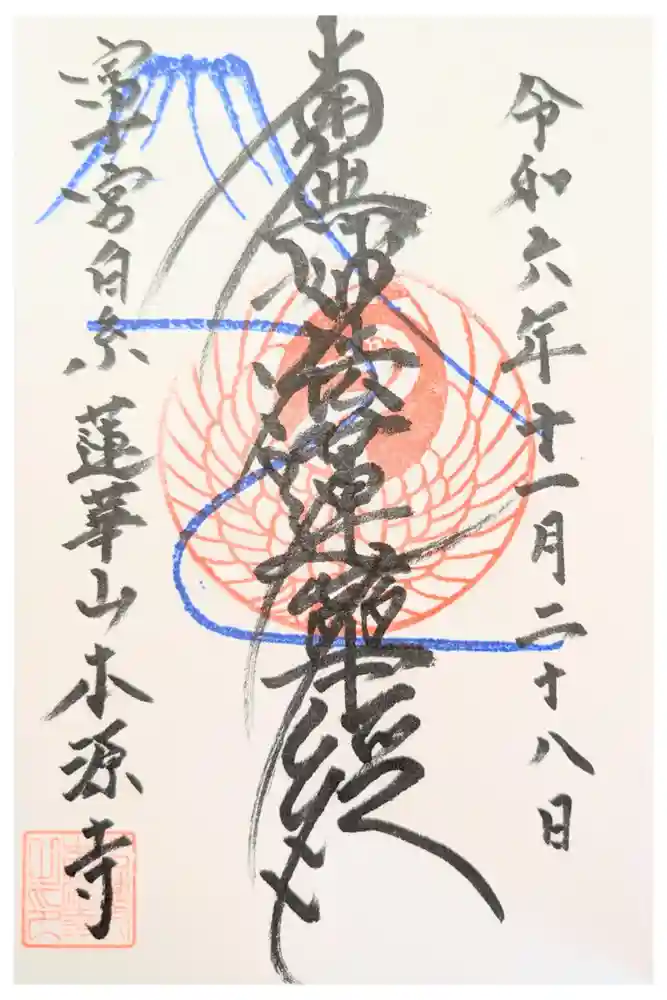 令和六年十一月二十八日
南無妙法蓮華経
富士宮白糸 蓮華山本源寺